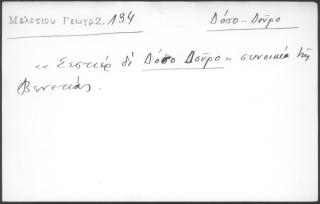 Μελετίου Γεωγρ2. 194
Δόσο - Δοῦρο
« Σεστιέρ δὲ Δόσο Δοῦρο » συνοικία τῆς
Βενετίας.